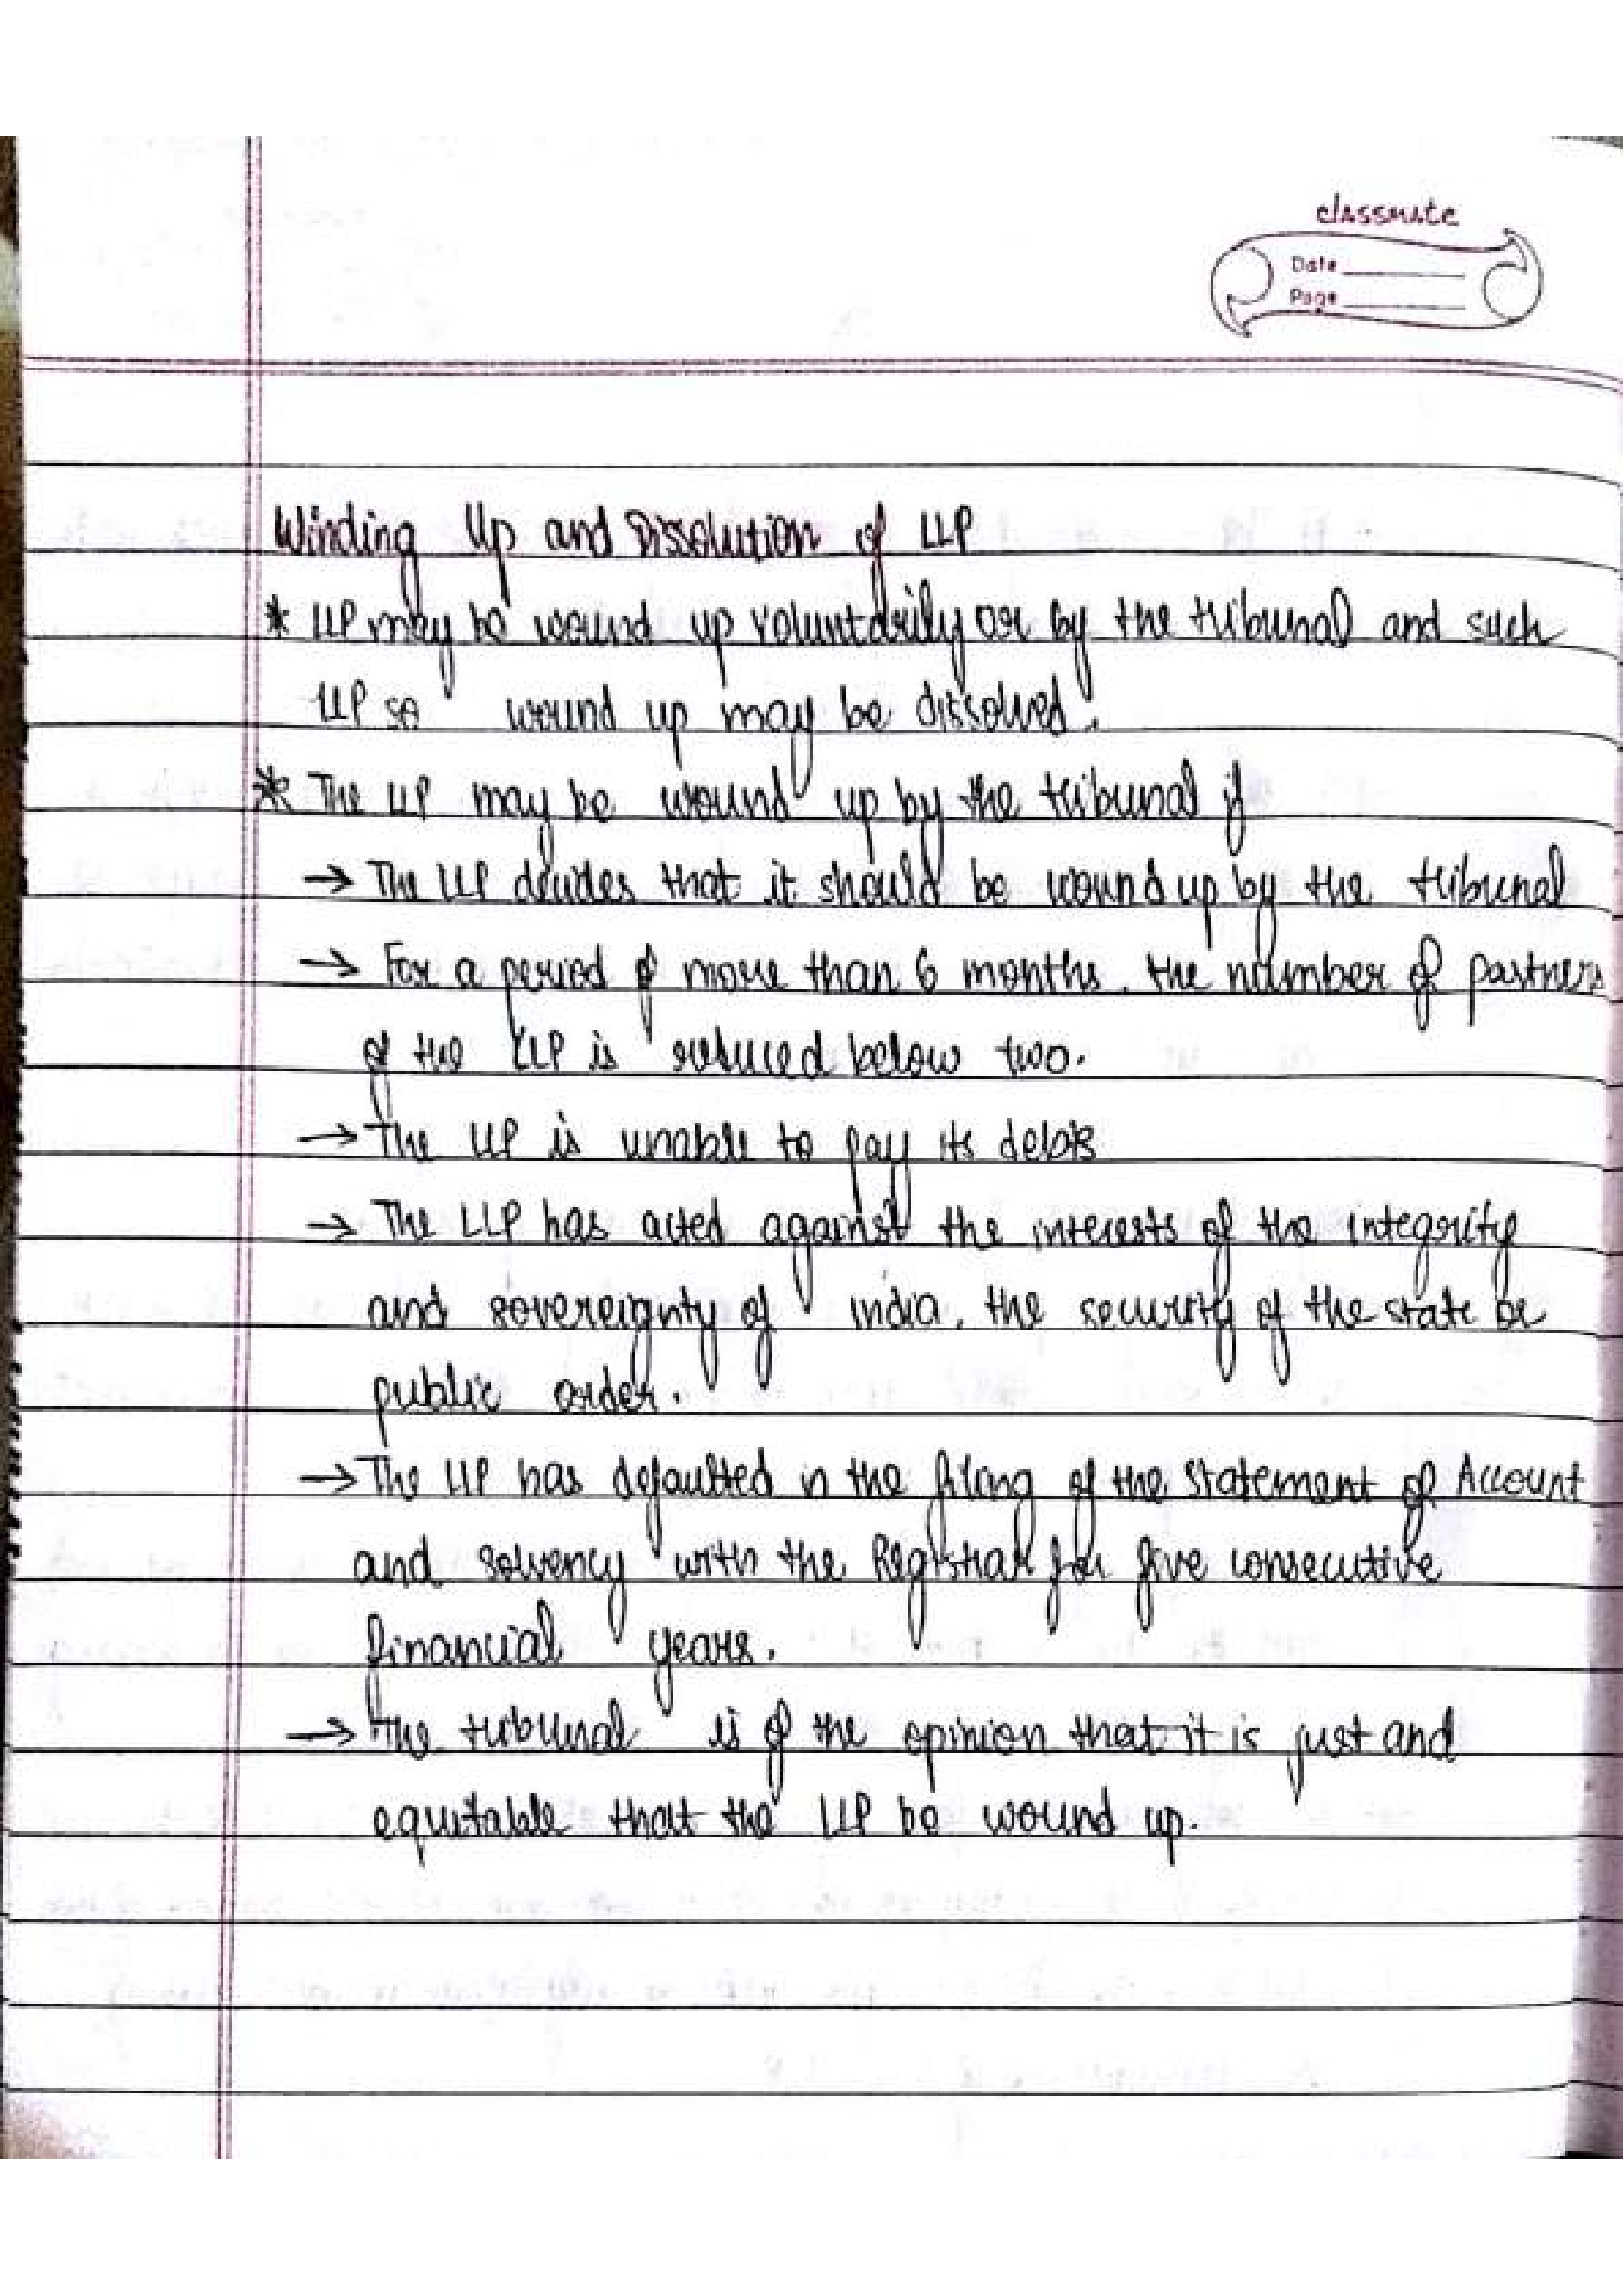 classmate
Date
Page
Winding Up and Dissolution of LLP
* LLP may be wound up voluntarily or by the tribunal and such
LLP so wound up may be dissolved.
* The LLP may be wound up by the tribunal if
→ The LLP decides that it should be wound up by the tribunal
→ For a period of more than 6 months, the number of partners
of the LLP is reduced below two.
→ The LLP is unable to pay its debts
→ The LLP has acted against the interests of the integrity
and sovereignty of india, the security of the state or
public order.
→ The LLP has defaulted in the filing of the Statement of Account
and solvency with the Registrar for five consecutive
financial years.
→ The tribunal is of the opinion that it is just and
equitable that the LLP be wound up.